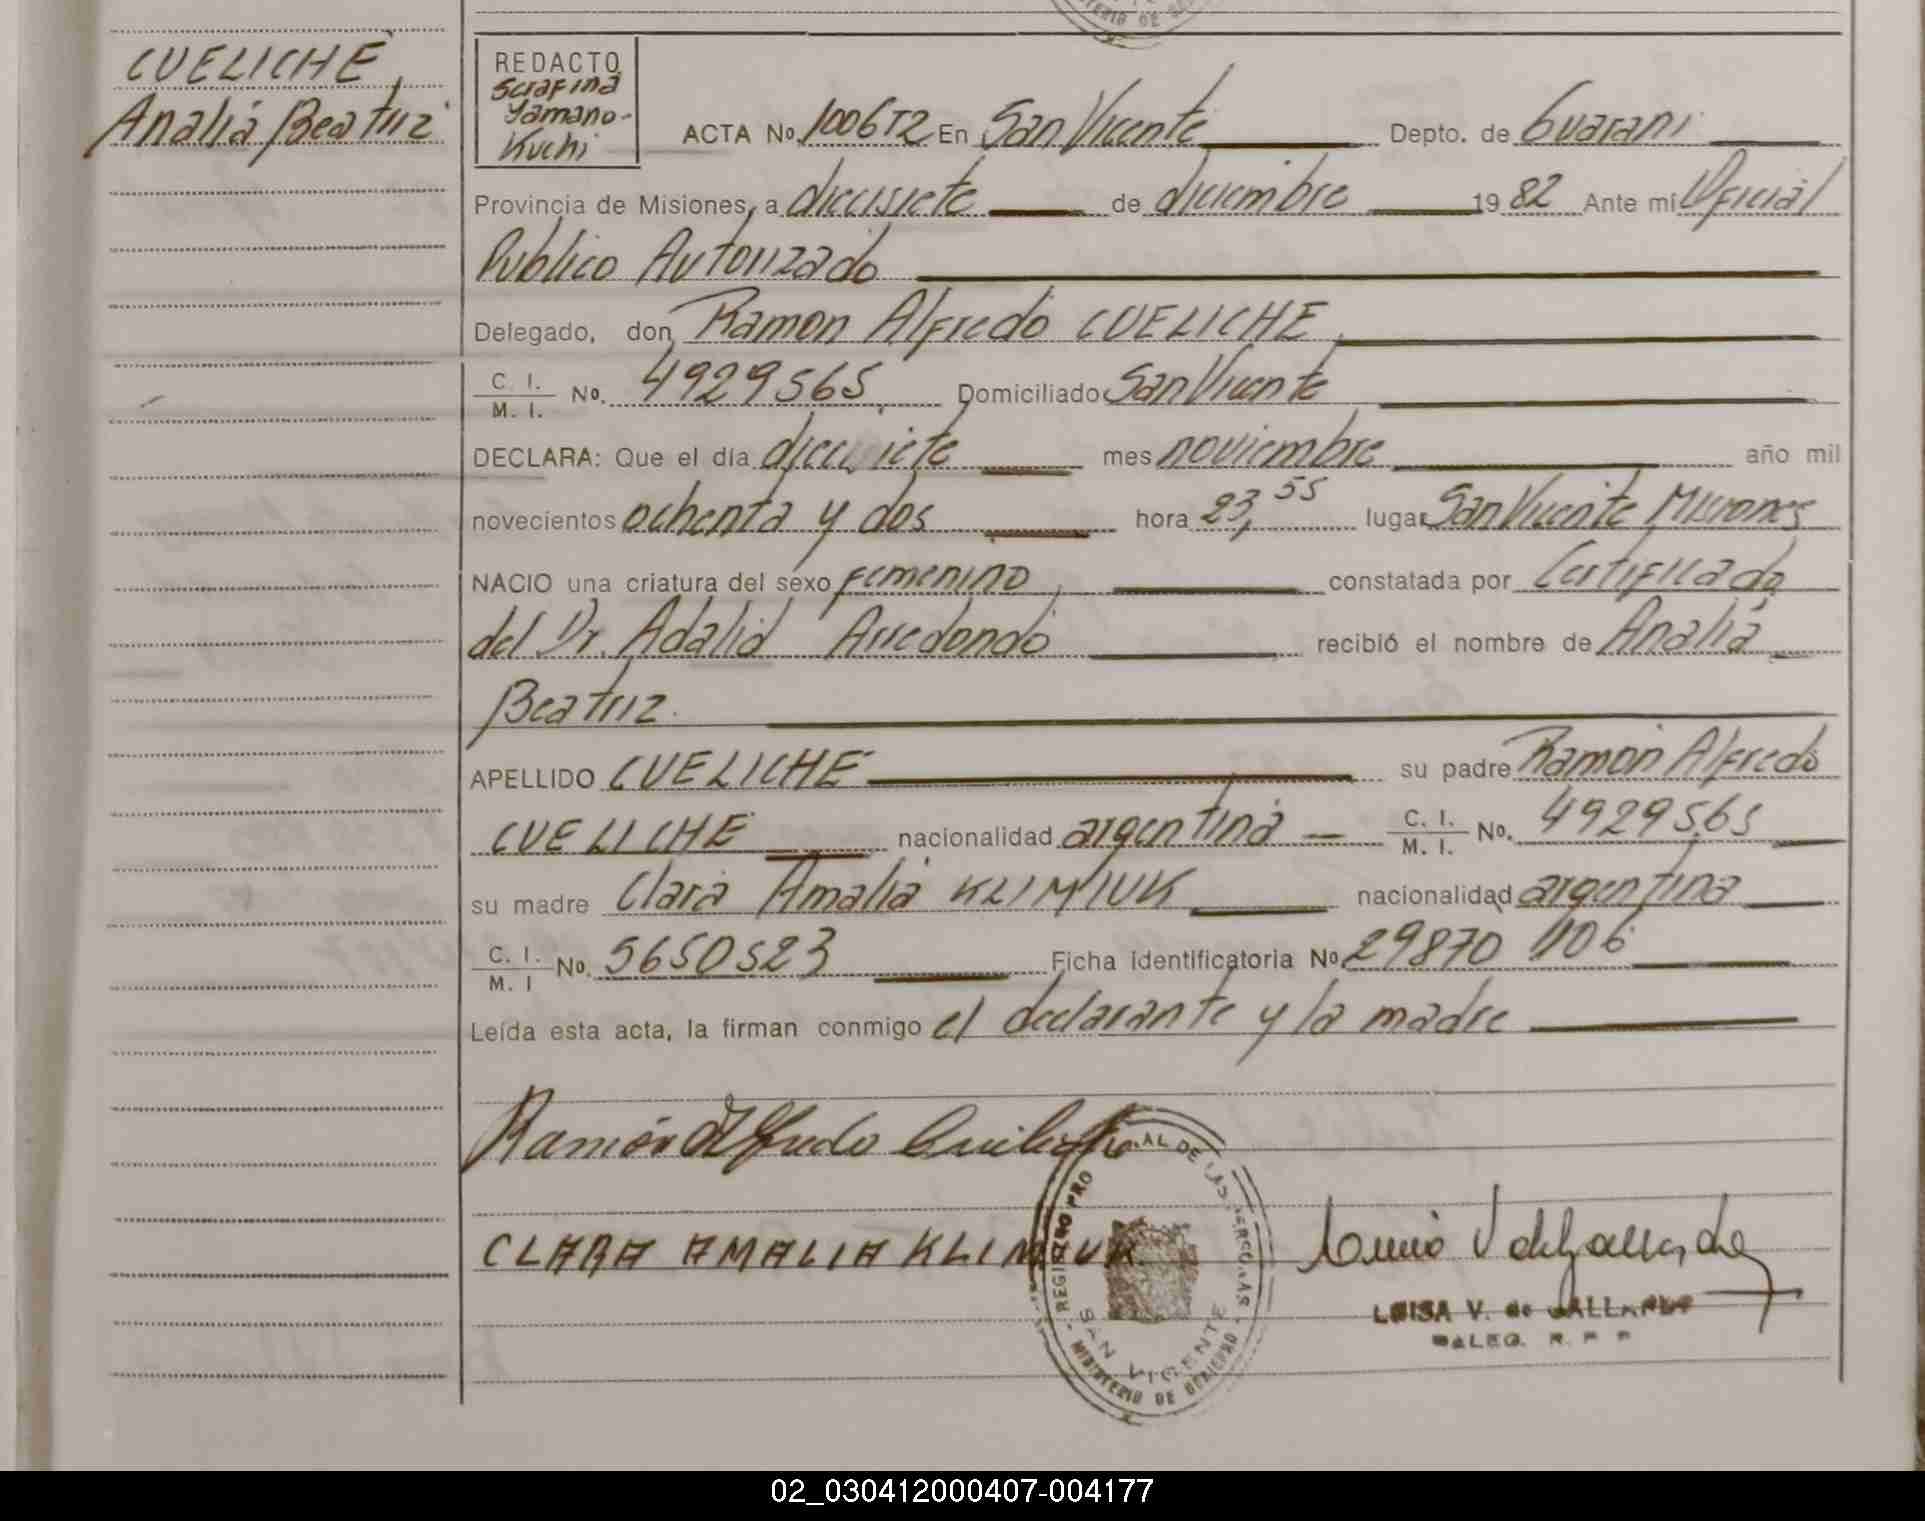 CUELICHE
Analia Beatriz
REDACTO
Serafina
Yamano-
Kuchi
ACTA No. 1006T2 En San Vicente Depto. de Guarani
Provincia de Misiones, a diecisiete de diciembre 1982 Ante mí Oficial
Publico Autorizado
Delegado, don Ramon Alfredo CUELICHE
C. I. / M. I. No. 4929565 Domiciliado San Vicente
DECLARA: Que el día diecisiete mes noviembre año mil
novecientos ochenta y dos hora 23,55 lugar San Vicente Misiones
NACIO una criatura del sexo femenino, constatada por Certificado
del Dr. Adalid Arredondo recibió el nombre de Analia
Beatriz
APELLIDO CUELICHE su padre Ramon Alfredo
CUELICHE nacionalidad argentina C. I. / M. I. No. 4929565
su madre Clara Amalia KLIMIUK nacionalidad argentina
C. I. / M. I No. 5650523 Ficha identificatoria No 29870 1106
Leída esta acta, la firman conmigo el declarante y la madre
Ramón Alfredo
CLARA AMALIA KLIMIUK
REGISTRO PROVINCIAL DE LAS PERSONAS
SAN VICENTE
MINISTERIO DE GOBIERNO
LUISA V. de GALLARDO
DALEG. R. P. P
02_030412000407-004177